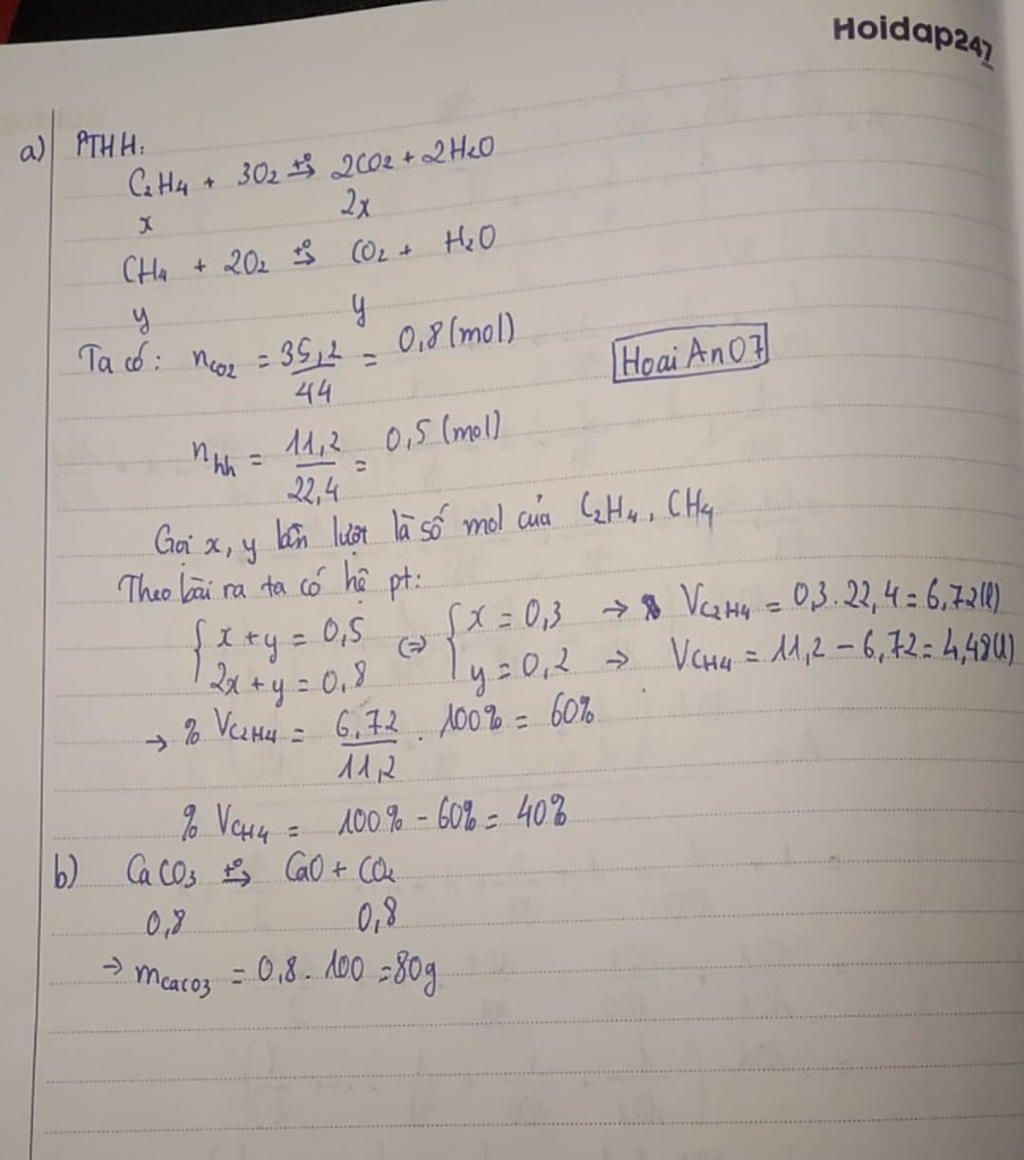 Hoidap247
a) PTHH:
C₂H₄ + 3O₂ t° → 2CO₂ + 2H₂O
x 2x
CH₄ + 2O₂ t° → CO₂ + H₂O
y y
Ta có: n_CO₂ = 35,2/44 = 0,8 (mol)
HoaiAn07
n_hh = 11,2/22,4 = 0,5 (mol)
Gọi x, y lần lượt là số mol của C₂H₄, CH₄
Theo bài ra ta có hệ pt:
{ x + y = 0,5 ⇔ { x = 0,3 → V_C₂H₄ = 0,3 . 22,4 = 6,72(l)
{ 2x + y = 0,8 { y = 0,2 → V_CH₄ = 11,2 - 6,72 = 4,48(l)
→ % V_C₂H₄ = 6,72/11,2 . 100% = 60%
% V_CH₄ = 100% - 60% = 40%
b) CaCO₃ t° → CaO + CO₂
0,8 0,8
→ m_CaCO₃ = 0,8 . 100 = 80g